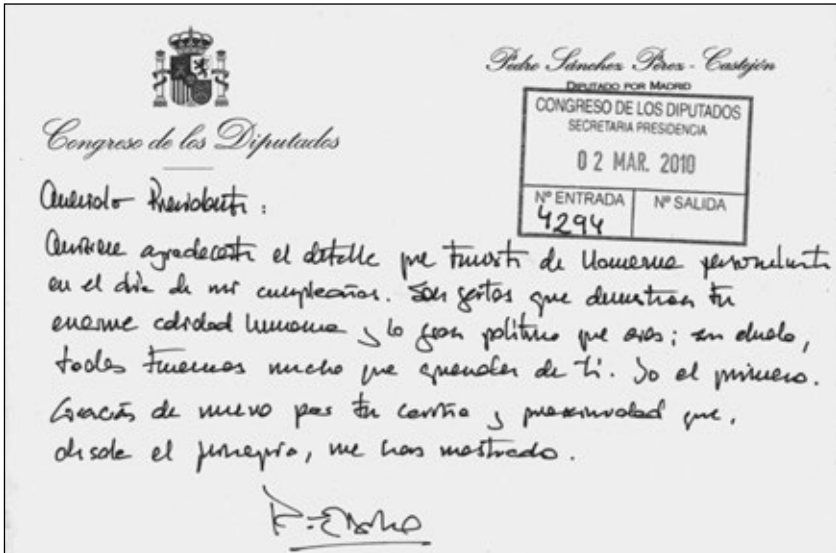 Pedro Sánchez Pérez-Castejón
DIPUTADO POR MADRID
Congreso de los Diputados
CONGRESO DE LOS DIPUTADOS
SECRETARIA PRESIDENCIA
02 MAR. 2010
Nº ENTRADA Nº SALIDA
4294
Querido Presidente:
Quisiera agradecerte el detalle que tuviste de llamarme personalmente
en el día de mi cumpleaños. Son gestos que demuestran tu
enorme calidad humana y lo gran político que eres; sin duda,
todos tenemos mucho que aprender de ti. Yo el primero.
Gracias de nuevo por tu cariño y proximidad que,
desde el principio, me has mostrado.